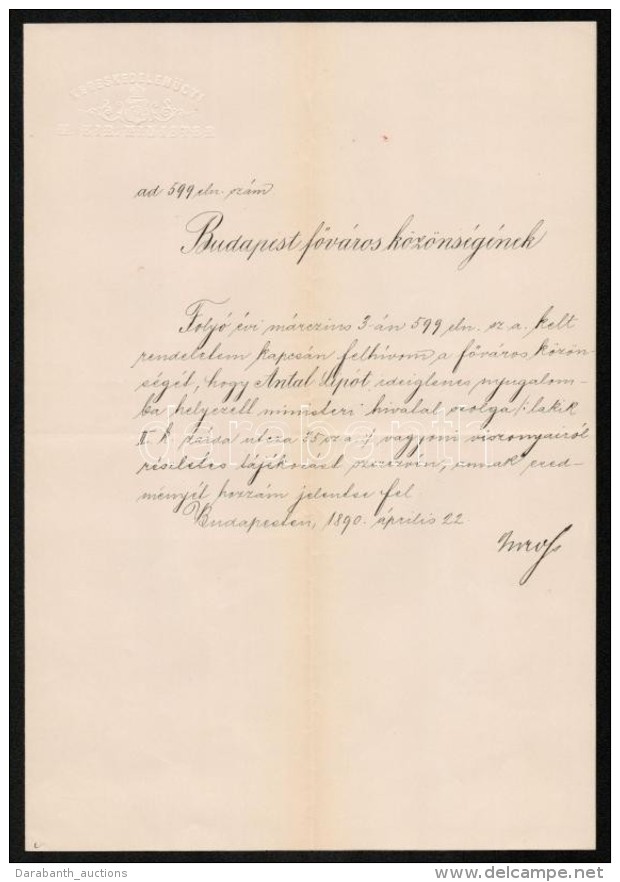 KERESKEDELEMÜGYI
M. KIR. MINISTER
ad 599 eln. szám
Budapest főváros közönségének
Folyó évi márczius 3-án 599 eln. sz. a. kelt
rendeletem kapcsán felhívom a főváros közön-
ségét, hogy Antal Lipót, ideiglenes nyugalom-
ba helyezett ministeri hivatal szolga /: lakik
II. k. utcza 75 sz. a. :/ vagyoni viszonyairól
részletes tájékozást szerezvén, annak ered-
ményét hozzám jelentse fel.
Budapesten, 1890. április 22.
darabanth
Darabanth_auctions
delcampe.net